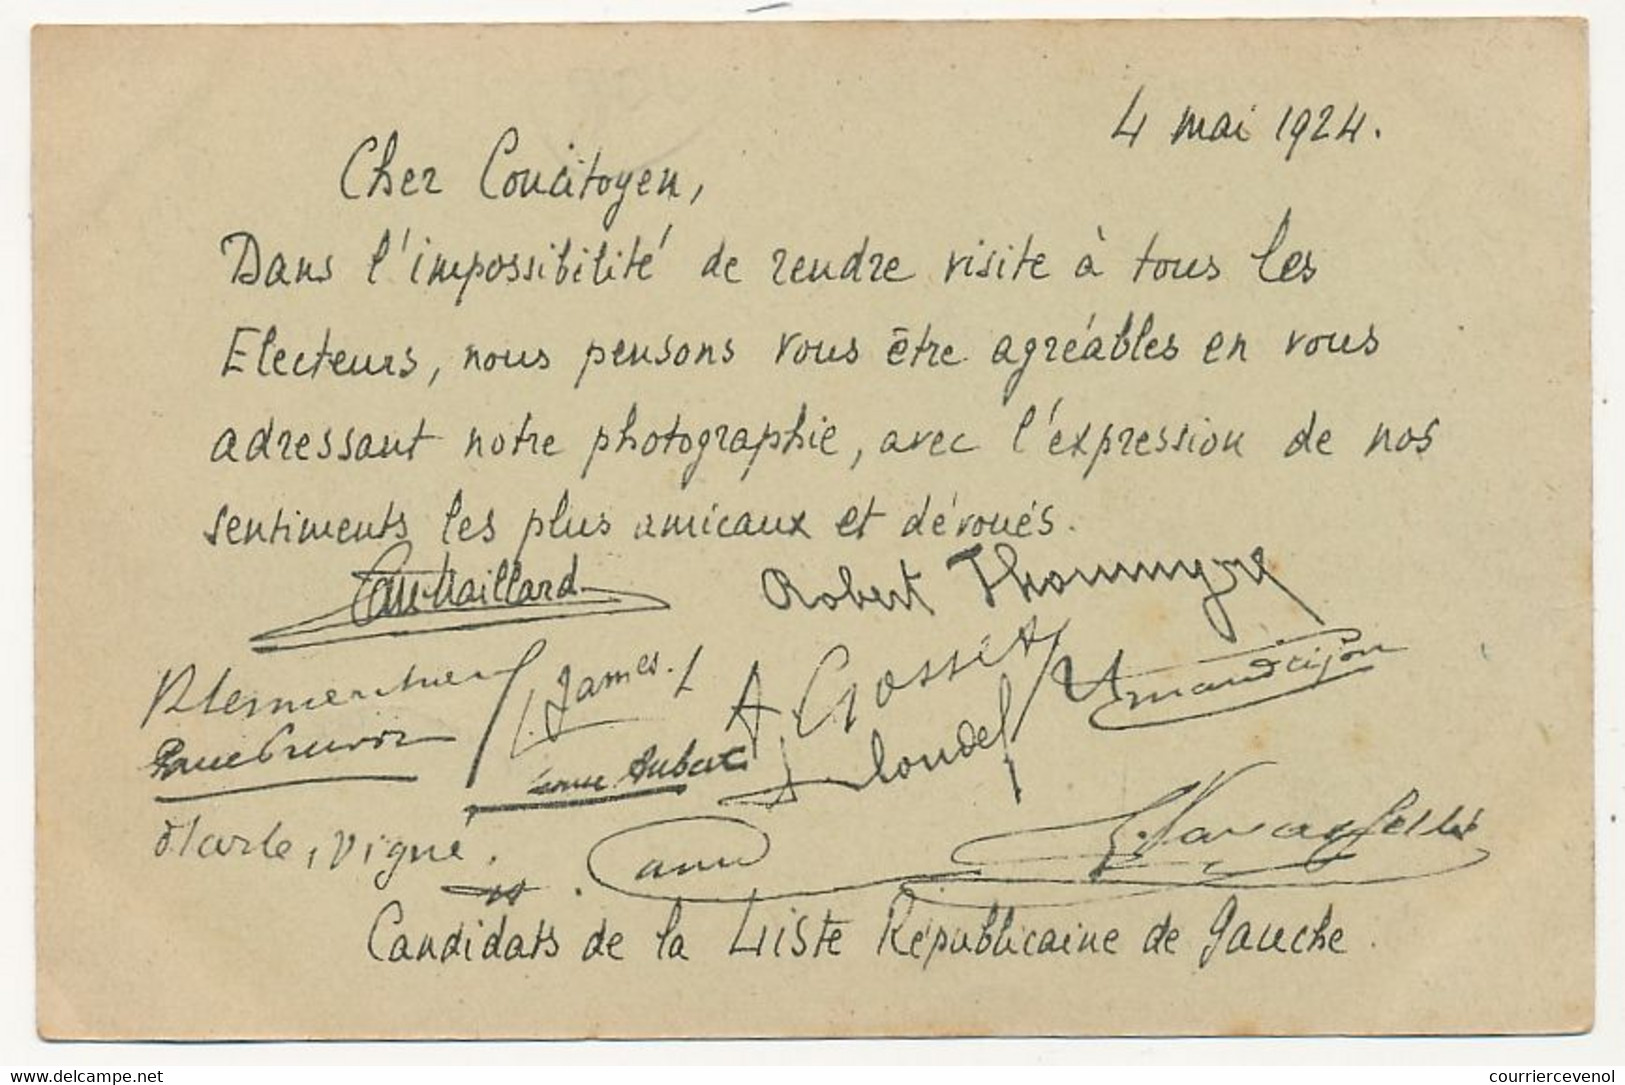 4 mai 1924.
Cher Concitoyen,
Dans l'impossibilité de rendre visite à tous les
Electeurs, nous pensons vous être agréables en vous
adressant notre photographie, avec l'expression de nos
sentiments les plus amicaux et dévoués.
Robert Thoumyre
James. A. Gosset
Blondel
Vigné
Candidats de la Liste Républicaine de Gauche.
www.delcampe.net
courriercevenol